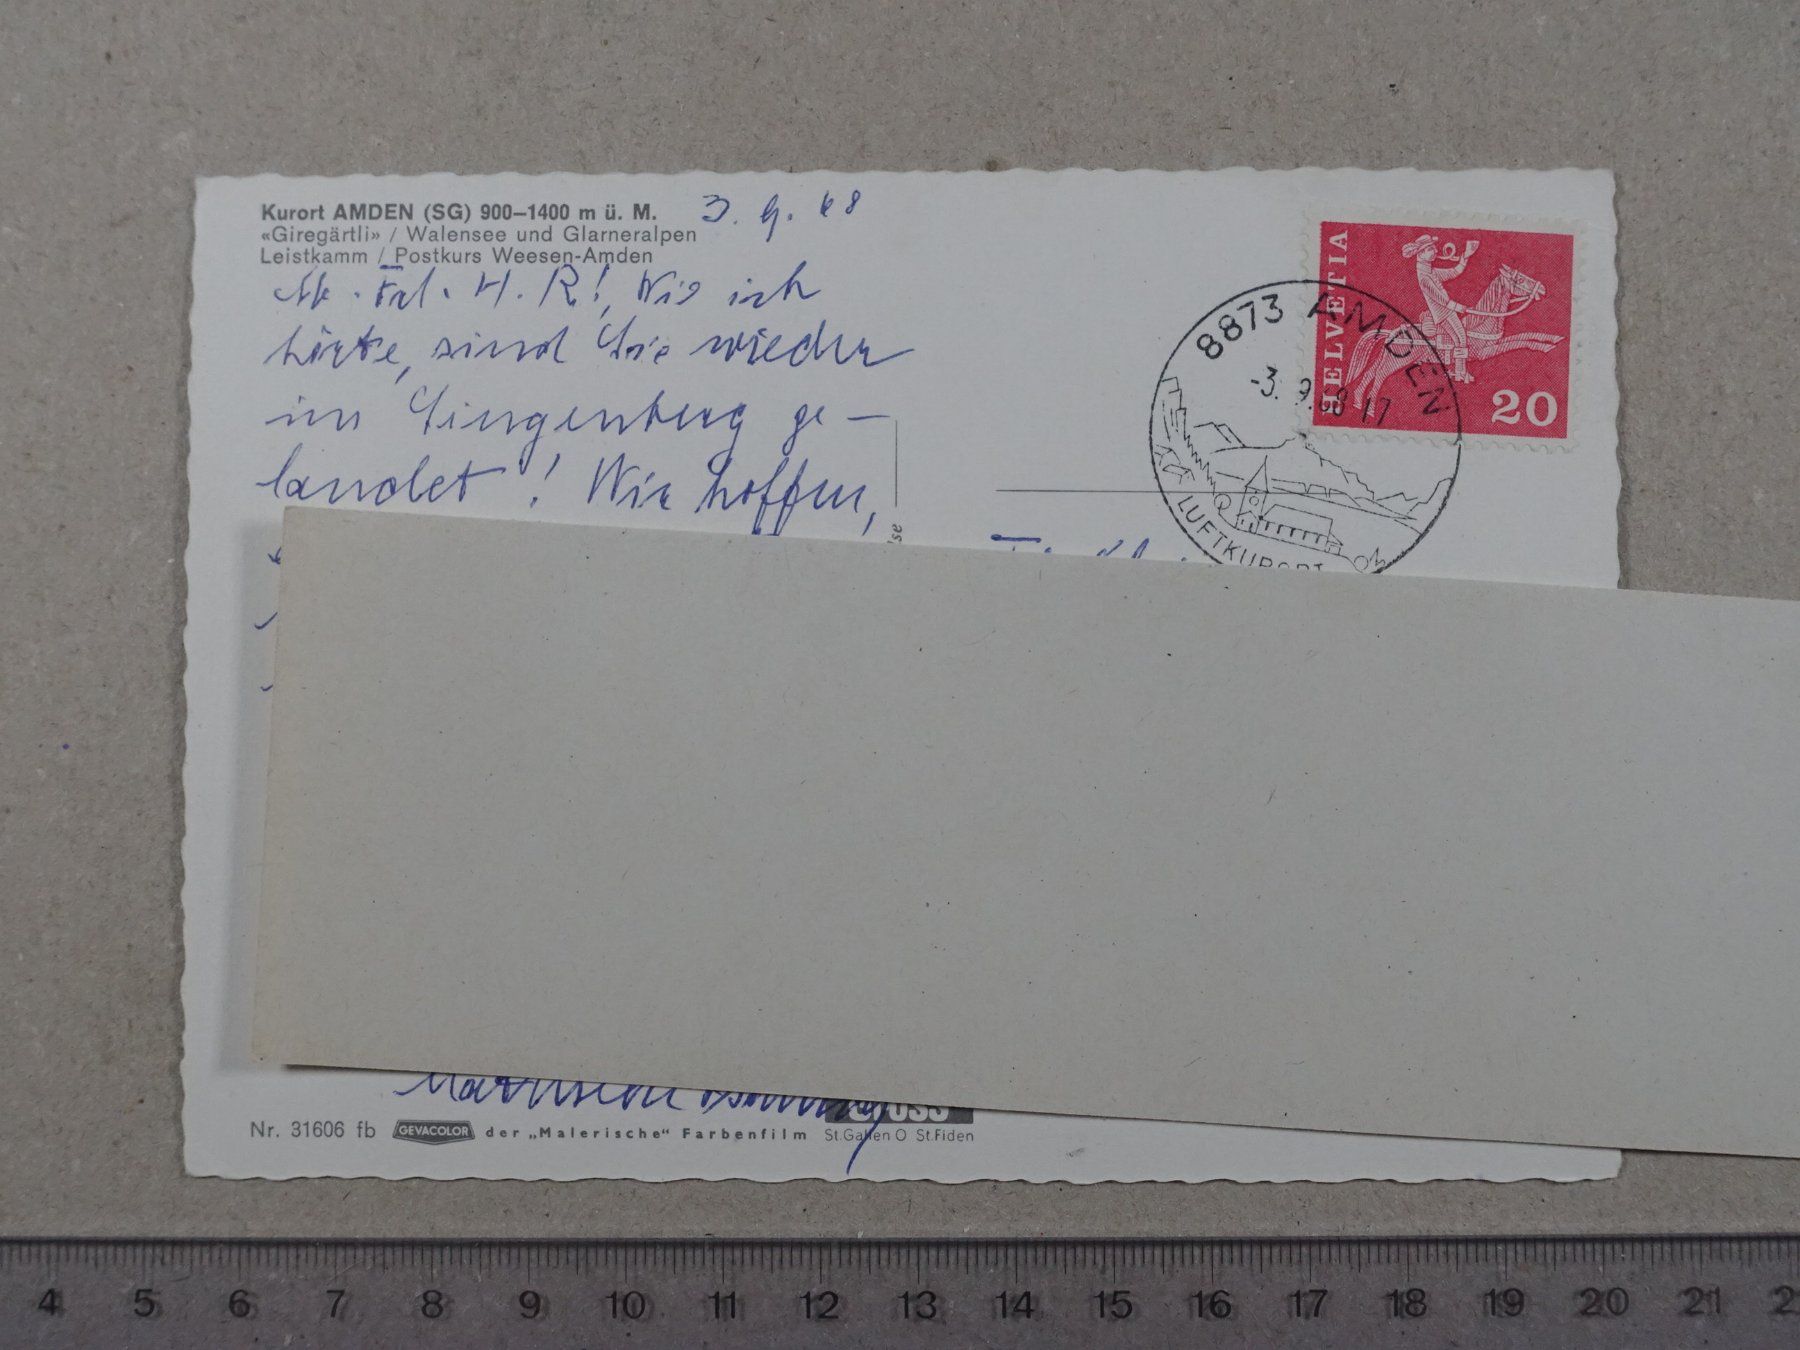 Kurort AMDEN (SG) 900–1400 m ü. M.
3. 9. 68
«Giregärtli» / Walensee und Glarneralpen
Leistkamm / Postkurs Weesen-Amden
Frl. H. R.! Wie ich
hörte, sind Sie wieder
im Singenberg ge-
landet! Wir hoffen,
HELVETIA
20
8873 AMDEN
-3. 9.68 17
LUFTKURORT
Nr. 31606 fb GEVACOLOR der „Malerische“ Farbenfilm
St.Gallen O St.Fiden
4 5 6 7 8 9 10 11 12 13 14 15 16 17 18 19 20 21